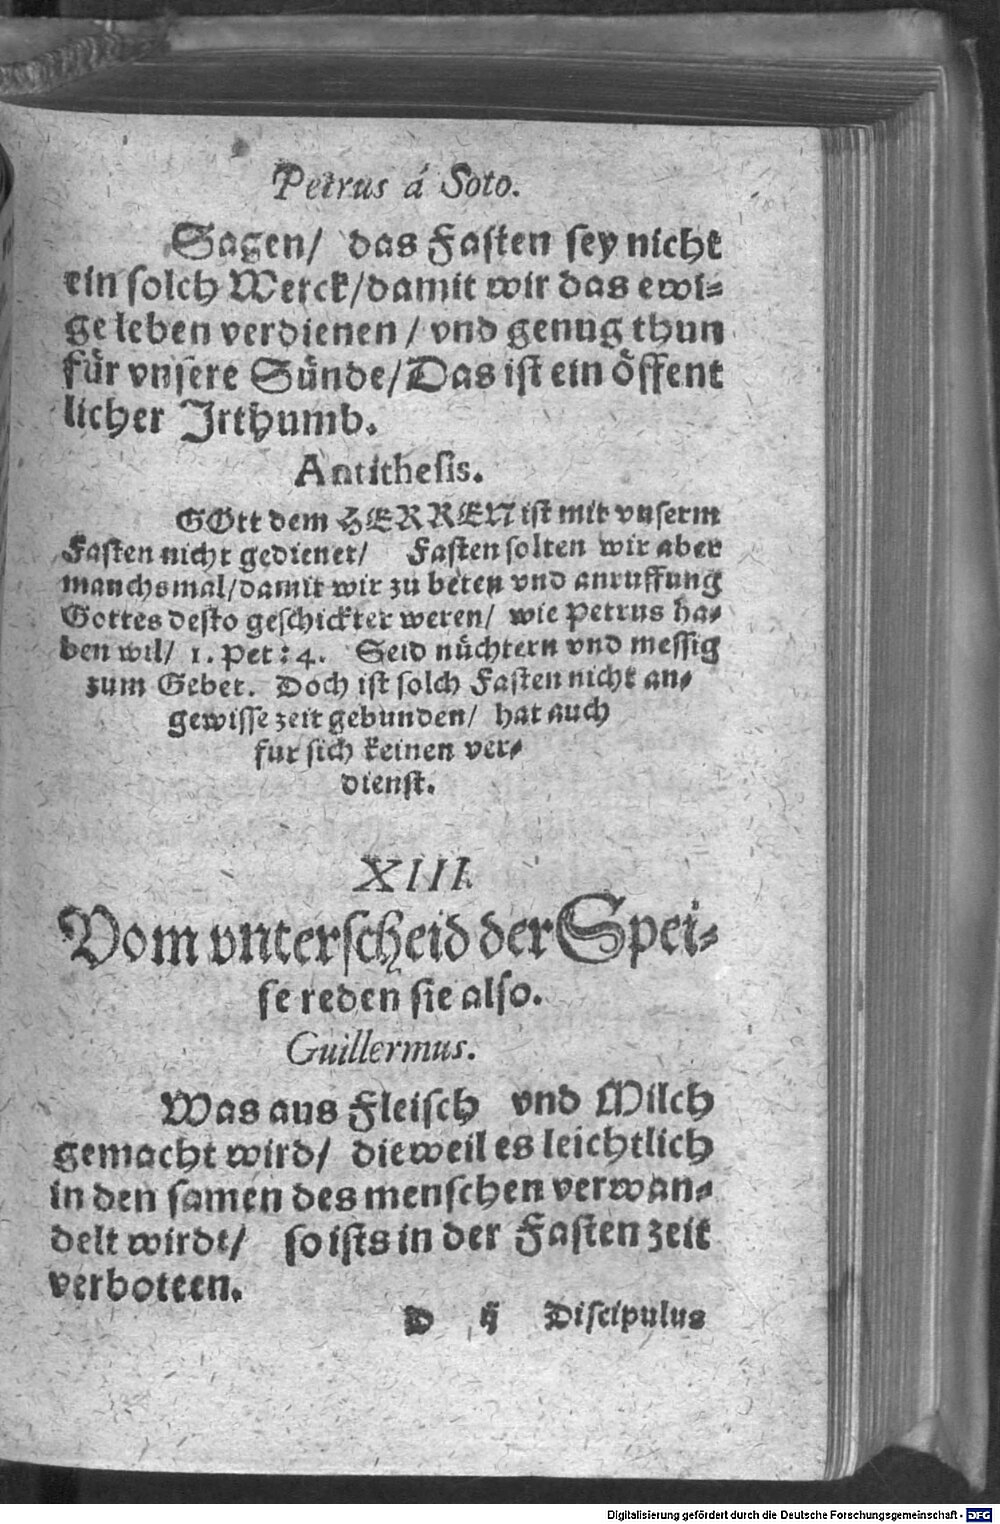 Petrus á Soto.
Sagen/ das Fasten sey nicht
ein solch Werck/damit wir das ewi-
ge leben verdienen / vnd genug thun
für vnsere Sünde/Das ist ein öffent
licher Irthumb.
Antithesis.
GOtt dem HERREN ist mit vnserm
Fasten nicht gedienet/ Fasten solten wir aber
manchsmal/damit wir zu beten vnd anruffung
Gottes desto geschickter weren/ wie Petrus ha-
ben wil/ 1. Pet: 4. Seid nüchtern vnd messig
zum Gebet. Doch ist solch Fasten nicht an-
gewisse zeit gebunden/ hat auch
fur sich keinen ver-
dienst.
XIII.
Vom vnterscheid der Spei-
se reden sie also.
Guillermus.
Was aus Fleisch vnd Milch
gemacht wird/ dieweil es leichtlich
in den samen des menschen verwan-
delt wirdt/ so ists in der Fasten zeit
verboteen.
D ij Discipulus
Digitalisierung gefördert durch die Deutsche Forschungsgemeinschaft - DFG